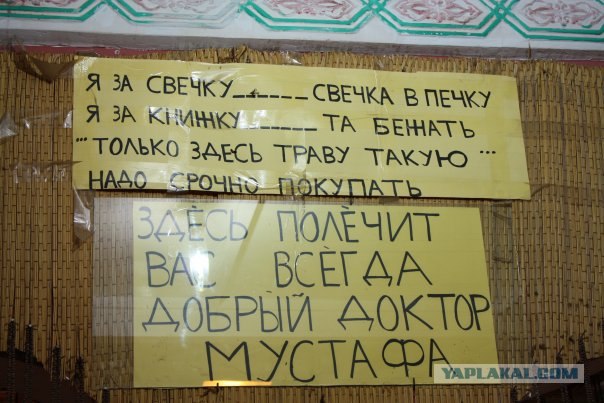 Я ЗА СВЕЧКУ______СВЕЧКА В ПЕЧКУ
Я ЗА КНИЖКУ_____ТА БЕЖАТЬ
"'ТОЛЬКО ЗДЕСЬ ТРАВУ ТАКУЮ"'
НАДО СРОЧНО ПОКУПАТЬ
ЗДЀСЬ ПОЛЀЧИТ
ВАС ВСЀГДА
ДОБРЫЙ ДОКТОР
МУСТАФА
YAPLAKAL.COM